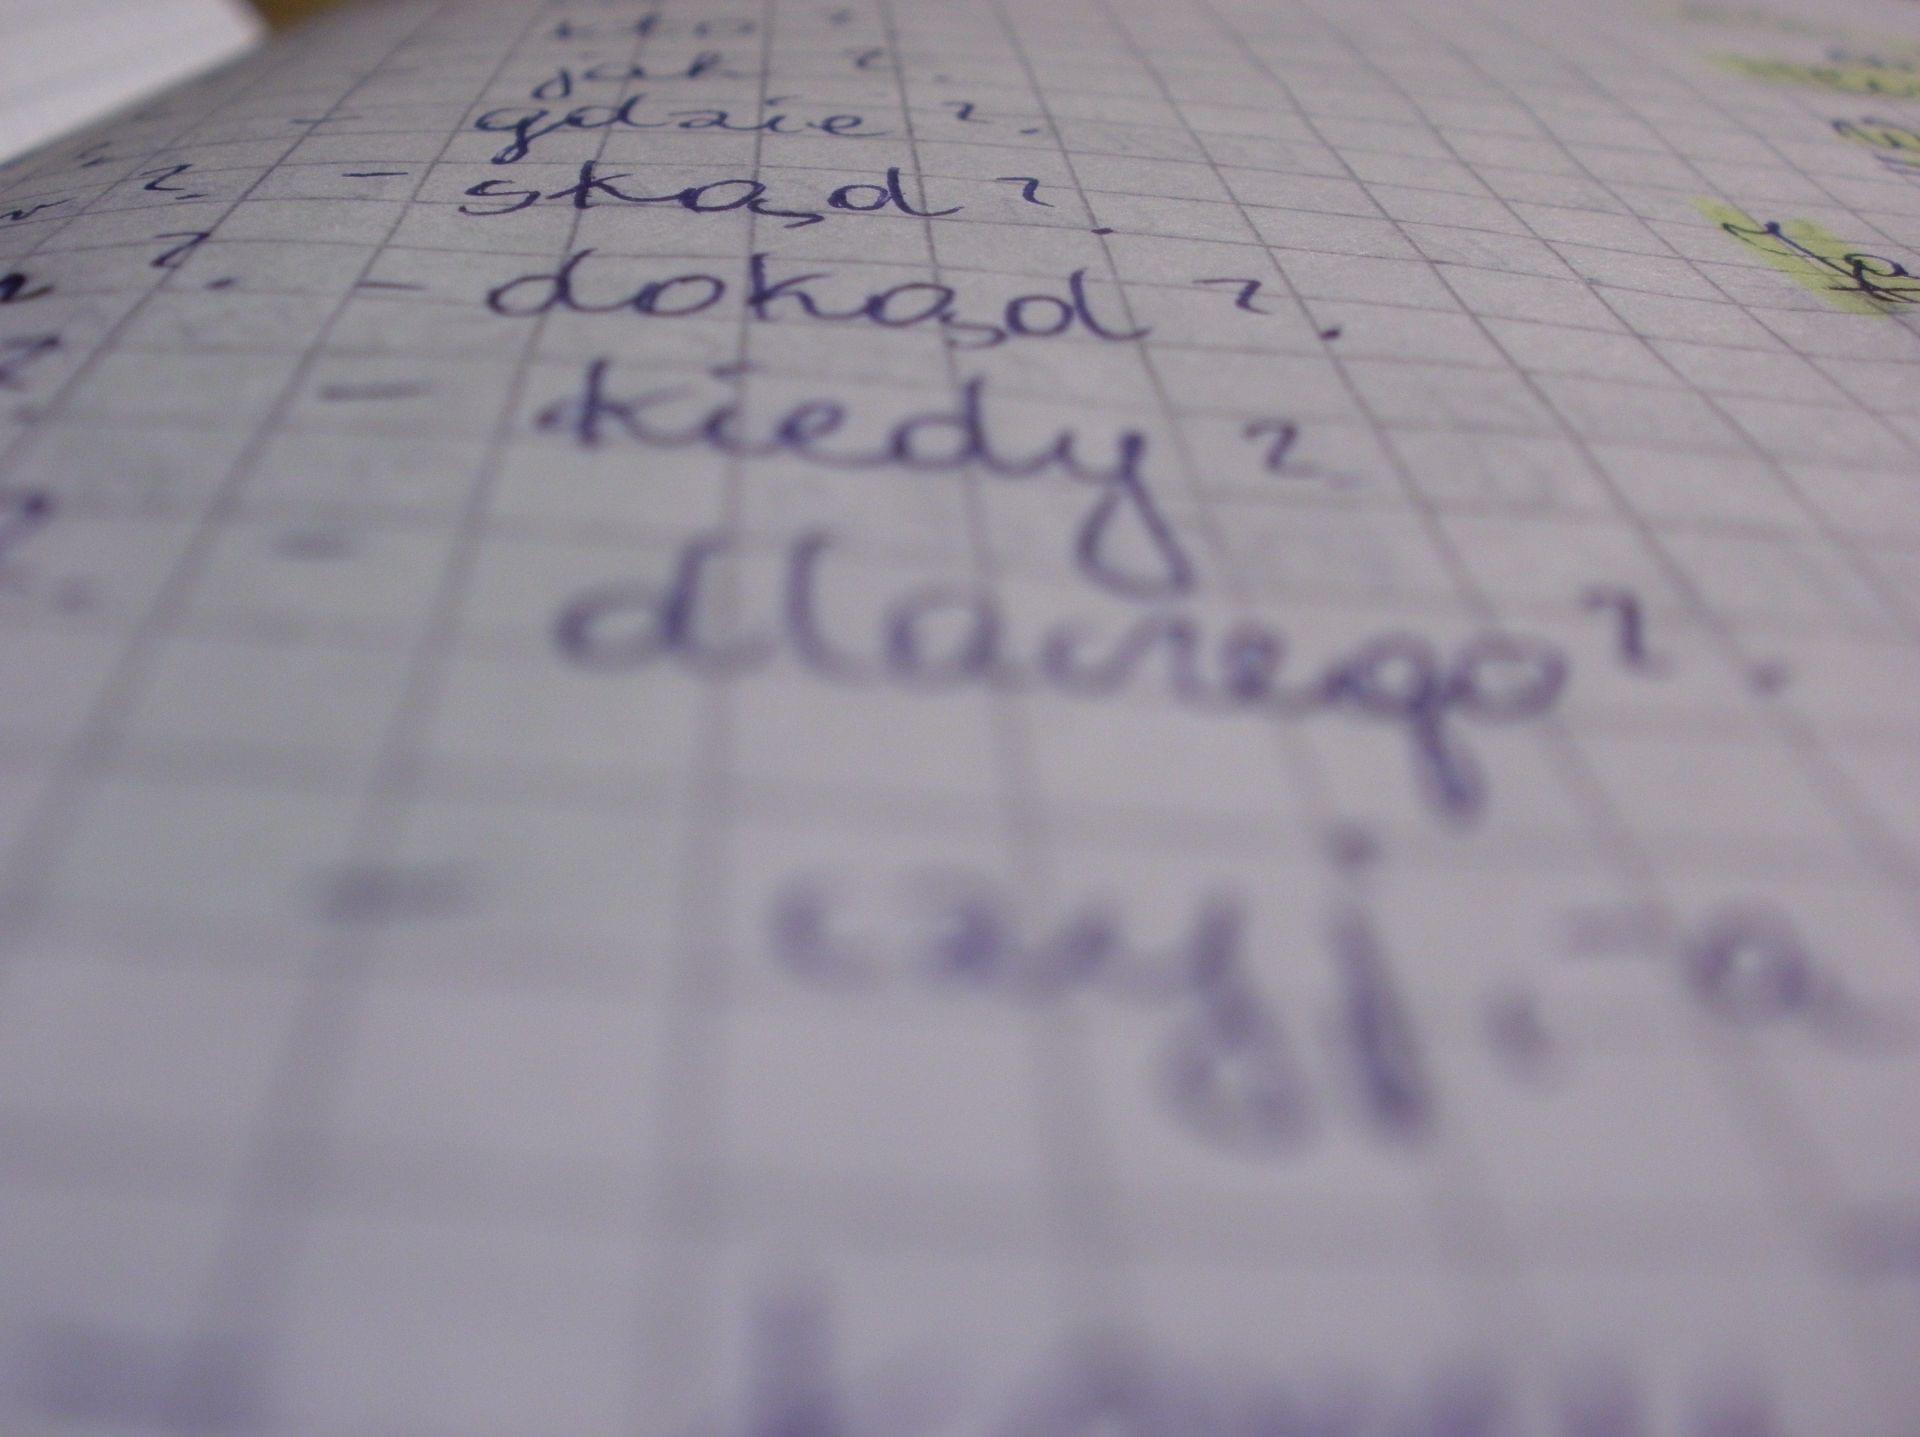 kto ?
jak ?.
- gdzie ?.
? - skąd ?.
?. - dokąd ?.
? - kiedy ?
?. - dlaczego ?.
- czyj, -a